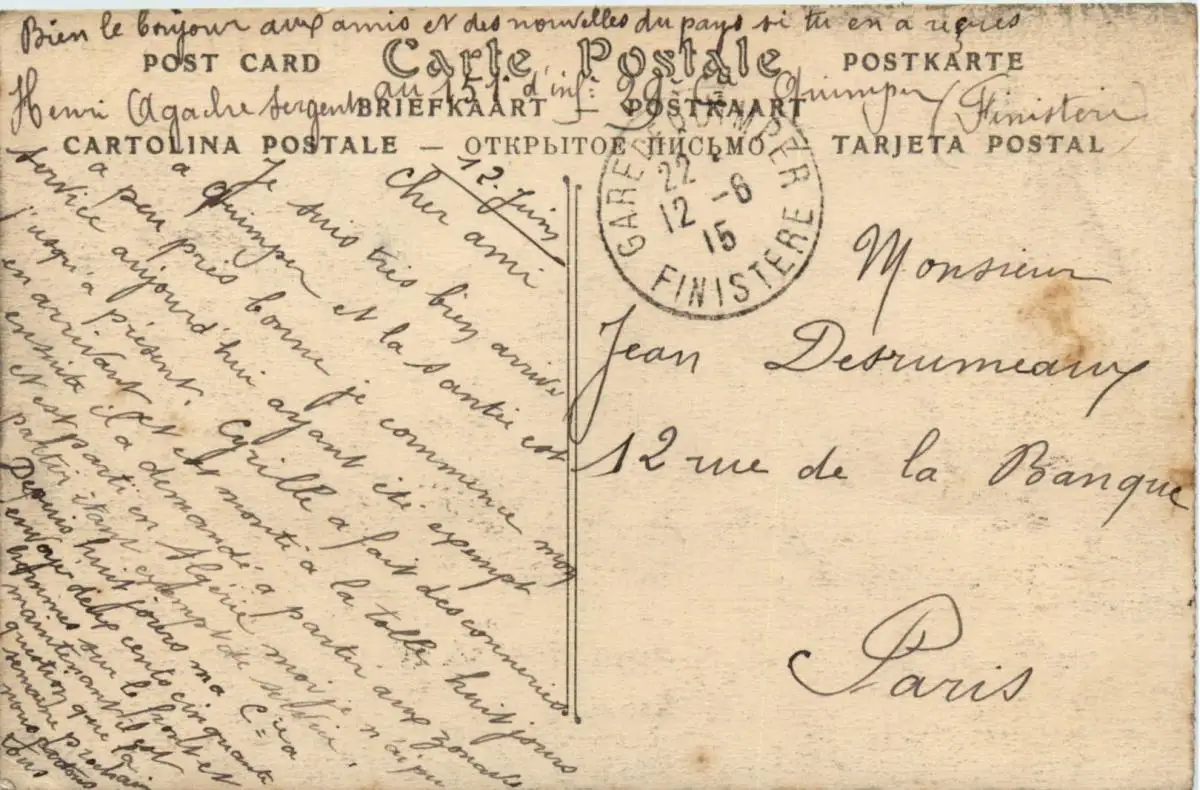 Bien le bonjour aux amis et des nouvelles du pays si tu en a reçues
POST CARD Carte Postale POSTKARTE
Henri Agache sergent au 151e d'inf: 29e Cie Quimper (Finistère)
BRIEFKAART — POSTKAART
CARTOLINA POSTALE — ОТКРЫТОЕ ПИСЬМО — TARJETA POSTAL
GARE DE QUIMPER
22
12 -6
15
FINISTERE
12. Juin
Cher ami
Je suis très bien arrivé
a Quimper et la santée est
a peu près bonne je commence mon
service aujourd'hui ayant été exempt
j'usqu'à présent. Cyrille a fait des conneries
en arrivant et est monté à la tolle, huit jours
ensuite il a demandé a partir aux zouaves
et est parti en Algérie moi je n'ai pu
partir étant exempt de
Depuis huit jours ma Cie a
envoyé deux cents cinquante
hommes sur le front et
maintenant il est
question que la
semaine prochain
nous partons
tous
Monsieur
Jean Desrumeaux
12 rue de la Banque
Paris